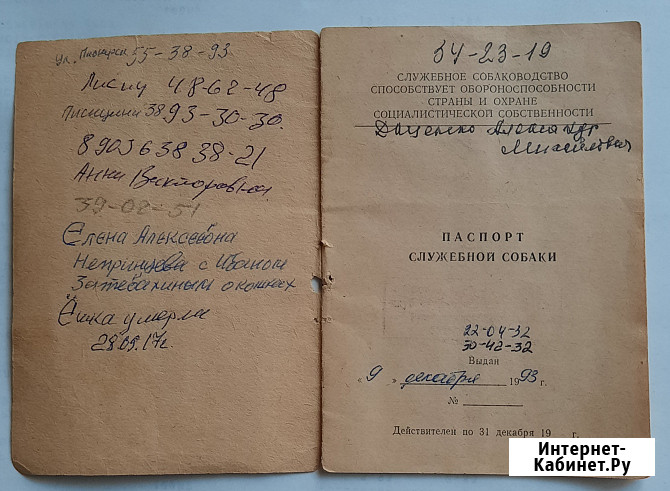 ул. 55-38-93
48-62-48
38 93-30-30.
8 903 638 38-21
Анна Викторовна
39-02-51
Елена Алексеевна
с Иваном
о кошках
умерла
28.09.17г.
34-23-19
СЛУЖЕБНОЕ СОБАКОВОДСТВО
СПОСОБСТВУЕТ ОБОРОНОСПОСОБНОСТИ
СТРАНЫ И ОХРАНЕ
СОЦИАЛИСТИЧЕСКОЙ СОБСТВЕННОСТИ
Даценко Александр
ПАСПОРТ
СЛУЖЕБНОЙ СОБАКИ
22-04-32
30-42-32
Выдан
«9» декабря 1993 г.
№
Действителен по 31 декабря 19 г.
Интернет-
Кабинет.Ру